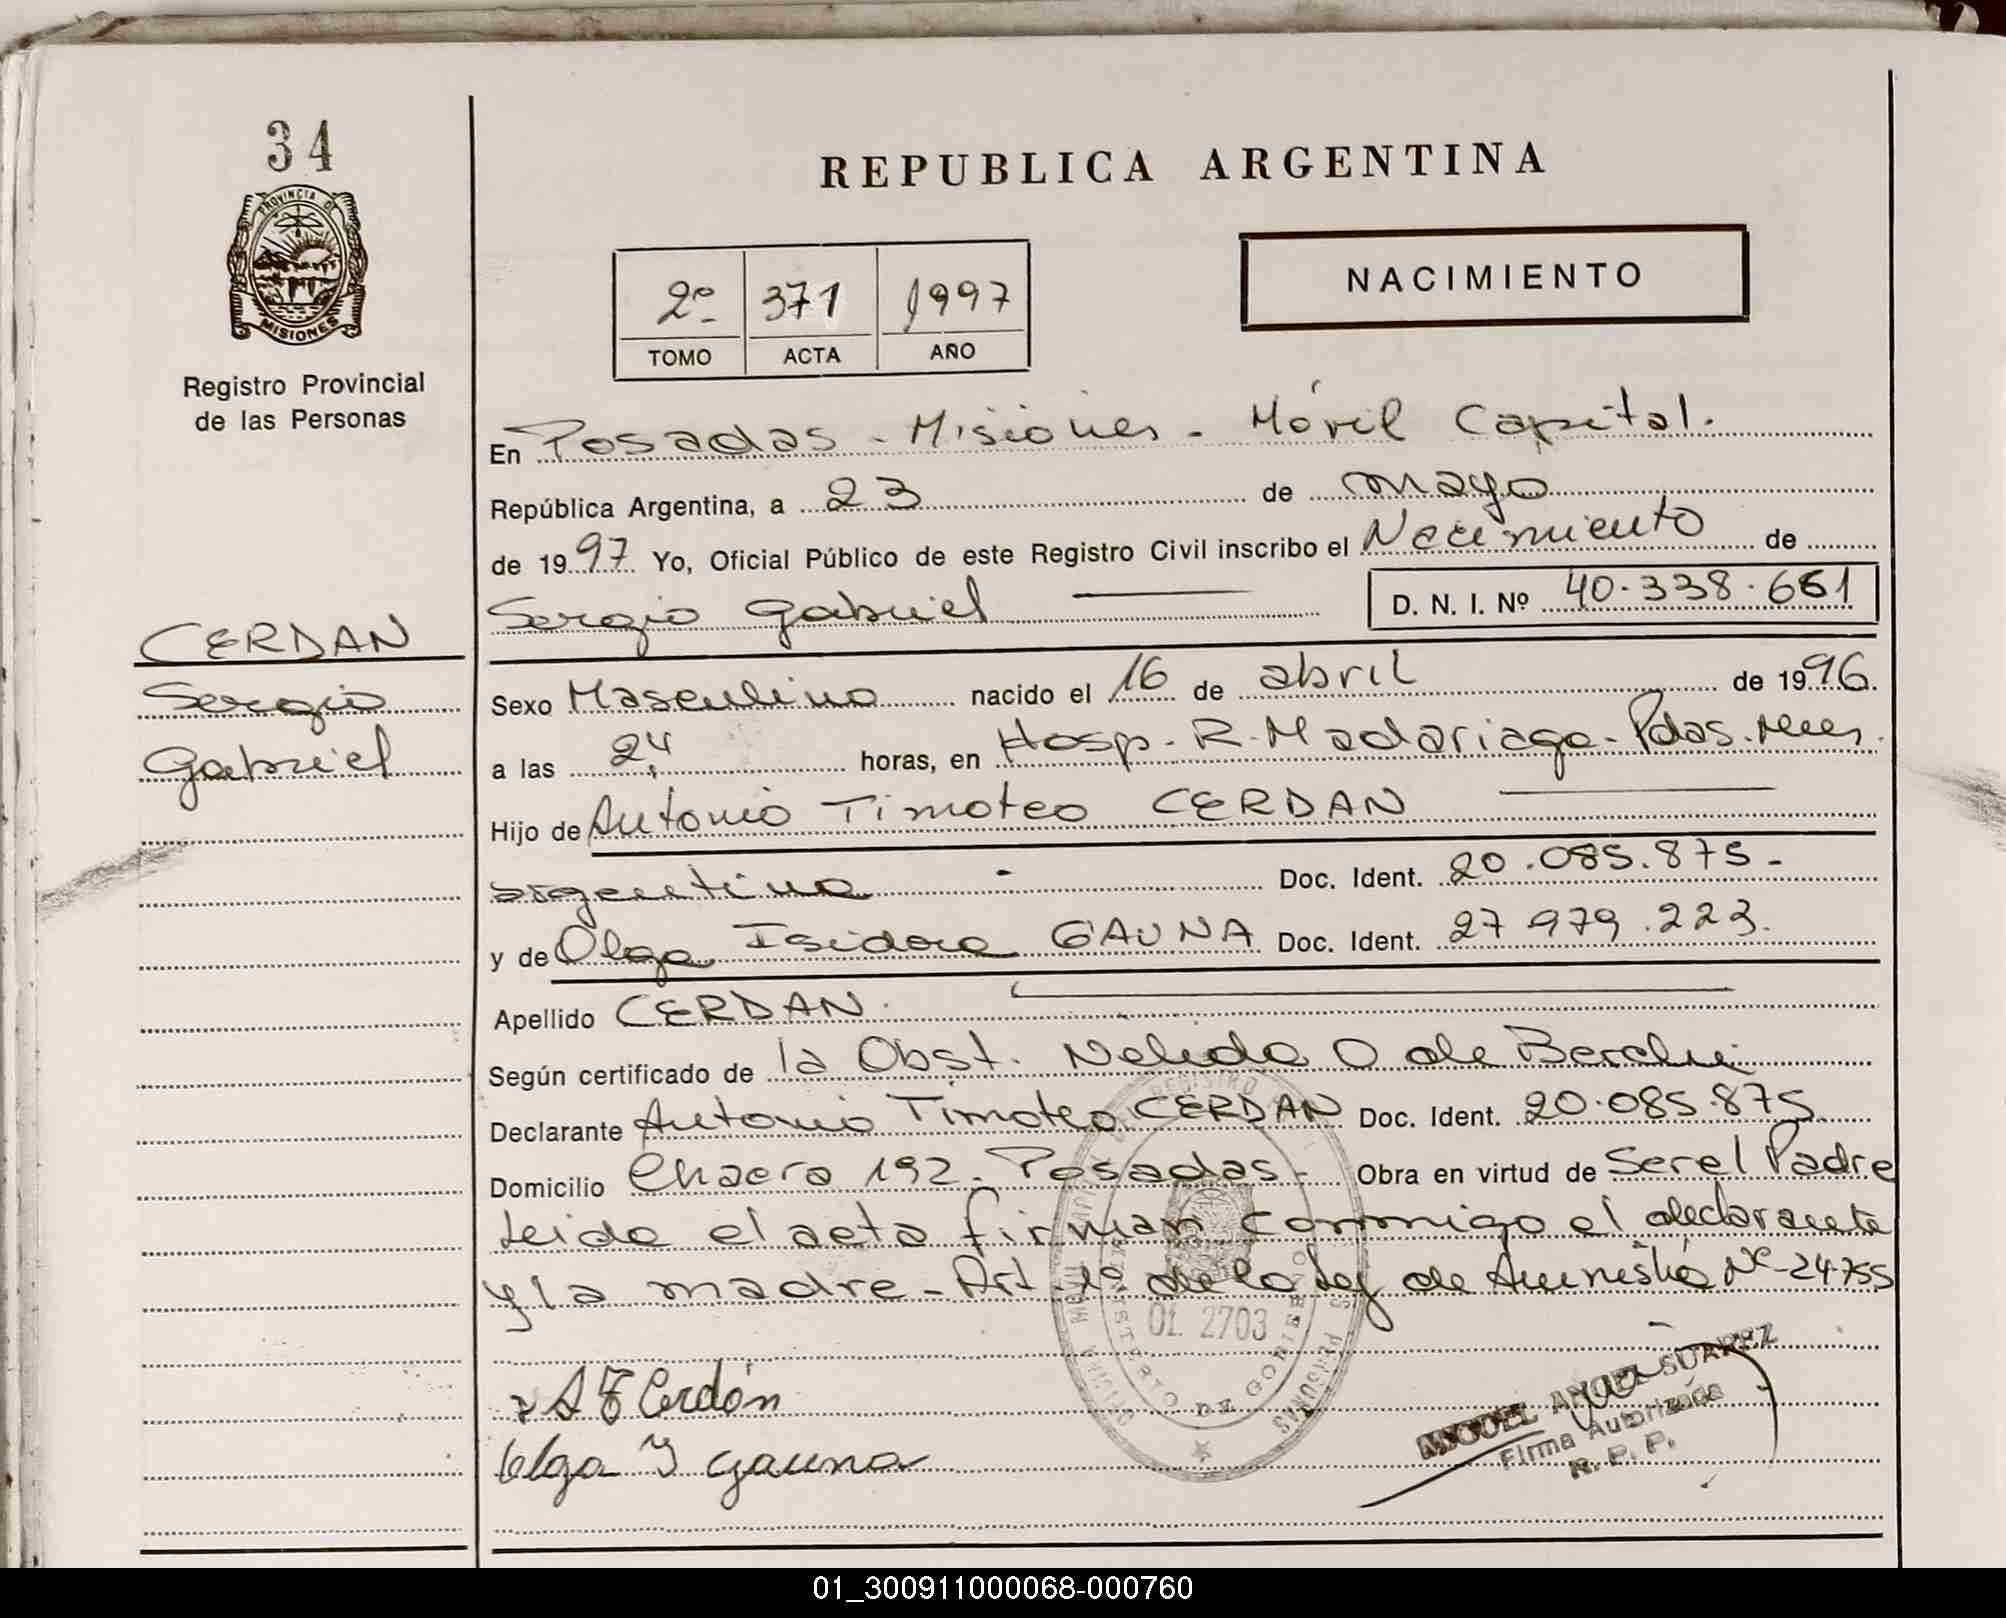 34
PROVINCIA DE
MISIONES
Registro Provincial
de las Personas
REPUBLICA ARGENTINA
NACIMIENTO
2º 371 1997
TOMO ACTA AÑO
En Posadas - Misiones - Móvil Capital.
República Argentina, a 23 de mayo
de 1997 Yo, Oficial Público de este Registro Civil inscribo el Nacimiento de
Sergio Gabriel D. N. I. Nº 40.338.661
CERDAN
Sergio
Gabriel
Sexo Masculino nacido el 16 de abril de 1996.
a las 24 horas, en Hosp. R. Madariaga - Pdas. Mnes.
Hijo de Antonio Timoteo CERDAN
argentina - Doc. Ident. 20.085.875-
y de Olga Isidora GAUNA Doc. Ident. 27.979.223.
Apellido CERDAN.
Según certificado de la Obst. Nelida O de
Declarante Antonio Timoteo CERDAN Doc. Ident. 20.085.875
Domicilio Chacra 192 - Posadas - Obra en virtud de Ser el Padre
Leida el acta firman conmigo el declarante
y la madre - Art. 1º de la Ley de Amnistia Nº 24.755
01 2703
MINISTERIO DE GOBIERNO
A T Cerdán
Olga Y gauna
MIGUEL ANGEL SUAREZ
Firma Autorizada
R. P. P.
01_300911000068-000760